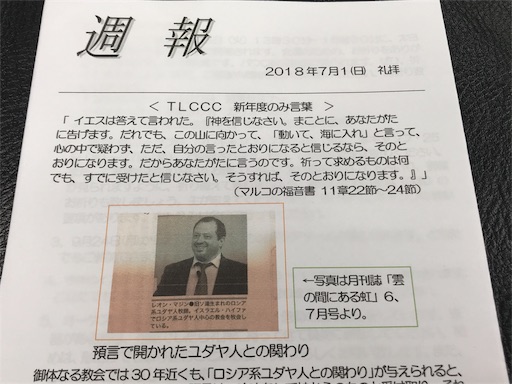 週 報
2018年7月1(日) 礼拝
＜ ＴＬＣＣＣ 新年度のみ言葉 ＞
「 イエスは答えて言われた。『神を信じなさい。まことに、あなたがた
に告げます。だれでも、この山に向かって、「動いて、海に入れ」と言って、
心の中で疑わず、ただ、自分の言ったとおりになると信じるなら、そのと
おりになります。だからあなたがたに言うのです。祈って求めるものは何
でも、すでに受けたと信じなさい。そうすれば、そのとおりになります。』」
（マルコの福音書 11章22節～24節）
レオン・マジン●旧ソ連生まれのロシア
系ユダヤ人牧師。イスラエル・ハイファ
でロシア系ユダヤ人中心の教会を牧会し
ている。
←写真は月刊誌「雲
の間にある虹」6、
7月号より。
預言で開かれたユダヤ人との関わり
御体なる教会では30年近くも、「ロシア系ユダヤ人との関わり」が与えられると、